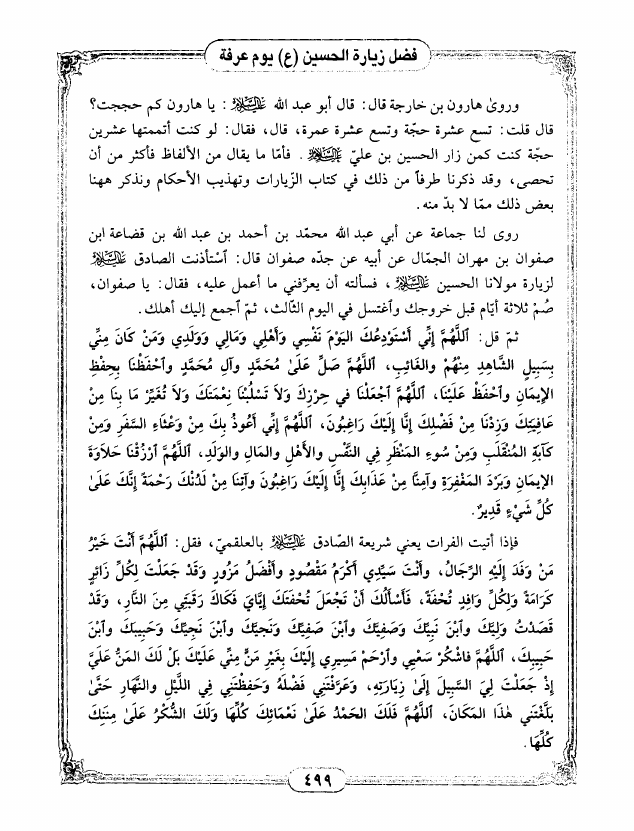 فضل زيارة الحسين (ع) يوم عرفة
وروىٰ هارون بن خارجة قال: قال أبو عبد الله عليه السلام: يا هارون كم حججت؟
قال قلت: تسع عشرة حجّة وتسع عشرة عمرة، قال، فقال: لو كنت أتممتها عشرين
حجّة كنت كمن زار الحسين بن عليّ عليه السلام. فأمّا ما يقال من الألفاظ فأكثر من أن
تحصى، وقد ذكرنا طرفاً من ذلك في كتاب الزّيارات وتهذيب الأحكام ونذكر ههنا
بعض ذلك ممّا لا بدّ منه.
روى لنا جماعة عن أبي عبد الله محمّد بن أحمد بن عبد الله بن قضاعة ابن
صفوان بن مهران الجمّال عن أبيه عن جدّه صفوان قال: ٱستأذنت الصادق عليه السلام
لزيارة مولانا الحسين عليه السلام، فسألته أن يعرّفني ما أعمل عليه، فقال: يا صفوان،
صُمْ ثلاثة أيّام قبل خروجك وٱغتسل في اليوم الثّالث، ثمّ ٱجمع إليك أهلك.
ثمّ قل: ٱللَّهُمَّ إِنِّي أَسْتَوْدِعُكَ اليَوْمَ نَفْسِي وَأَهْلِي وَمَالِي وَوَلَدِي وَمَنْ كَانَ مِنِّي
بِسَبِيلٍ الشَّاهِدِ مِنْهُمْ والغَائِبِ، ٱللَّهُمَّ صَلِّ عَلَىٰ مُحَمَّدٍ وَآلِ مُحَمَّدٍ وٱحْفَظْنَا بِحِفْظِ
الإِيمَانِ وٱحْفَظْ عَلَيْنَا، ٱللَّهُمَّ ٱجْعَلْنَا في حِرْزِكَ وَلاَ تَسْلُبْنَا نِعْمَتَكَ وَلاَ تُغَيِّرْ مَا بِنَا مِنْ
عَافِيَتِكَ وَزِدْنَا مِنْ فَضْلِكَ إِنَّا إِلَيْكَ رَاغِبُونَ، ٱللَّهُمَّ إِنِّي أَعُوذُ بِكَ مِنْ وَعْثَاءِ السَّفَرِ وَمِنْ
كَآبَةِ المُنْقَلَبِ وَمِنْ سُوءِ المَنْظَرِ فِي النَّفْسِ والأَهْلِ والمَالِ والوَلَدِ، ٱللَّهُمَّ ٱرْزُقْنَا حَلاَوَةَ
الإِيمَانِ وَبَرْدَ المَغْفِرَةِ وآمِنَّا مِنْ عَذَابِكَ إِنَّا إِلَيْكَ رَاغِبُونَ وَآتِنَا مِنْ لَدُنْكَ رَحْمَةً إِنَّكَ عَلَىٰ
كُلِّ شَيْءٍ قَدِيرٌ.
فإذا أتيت الفرات يعني شريعة الصّادق عليه السلام بالعلقميّ، فقل: ٱللَّهُمَّ أَنْتَ خَيْرُ
مَنْ وَفَدَ إِلَيْهِ الرِّجَالُ، وأَنْتَ سَيِّدِي أَكْرَمُ مَقْصُودٍ وأَفْضَلُ مَزُورٍ وَقَدْ جَعَلْتَ لِكُلِّ زَائِرٍ
كَرَامَةً وَلِكُلِّ وَافِدٍ تُحْفَةً، فَأَسْأَلُكَ أَنْ تَجْعَلَ تُحْفَتَكَ إِيَّايَ فَكَاكَ رَقَبَتِي مِنَ النَّارِ، وَقَدْ
قَصَدْتُ وَلِيَّكَ وٱبْنَ نَبِيِّكَ وَصَفِيَّكَ وٱبْنَ صَفِيِّكَ وَنَجِيَّكَ وٱبْنَ نَجِيِّكَ وَحَبِيبَكَ وٱبْنَ
حَبِيبِكَ، ٱللَّهُمَّ فاشْكُرْ سَعْيِي وٱرْحَمْ مَسِيرِي إِلَيْكَ بِغَيْرِ مَنٍّ مِنِّي عَلَيْكَ بَلْ لَكَ المَنُّ عَلَيَّ
إِذْ جَعَلْتَ لِيَ السَّبِيلَ إِلَىٰ زِيَارَتِهِ، وَعَرَّفْتَنِي فَضْلَهُ وَحَفِظْتَنِي فِي اللَّيْلِ والنَّهَارِ حَتَّىٰ
بَلَّغْتَنِي هٰذَا المَكَانَ، ٱللَّهُمَّ فَلَكَ الحَمْدُ عَلَىٰ نَعْمَائِكَ كُلِّهَا وَلَكَ الشُّكْرُ عَلَىٰ مِنَنِكَ
كُلِّهَا.
٤٩٩